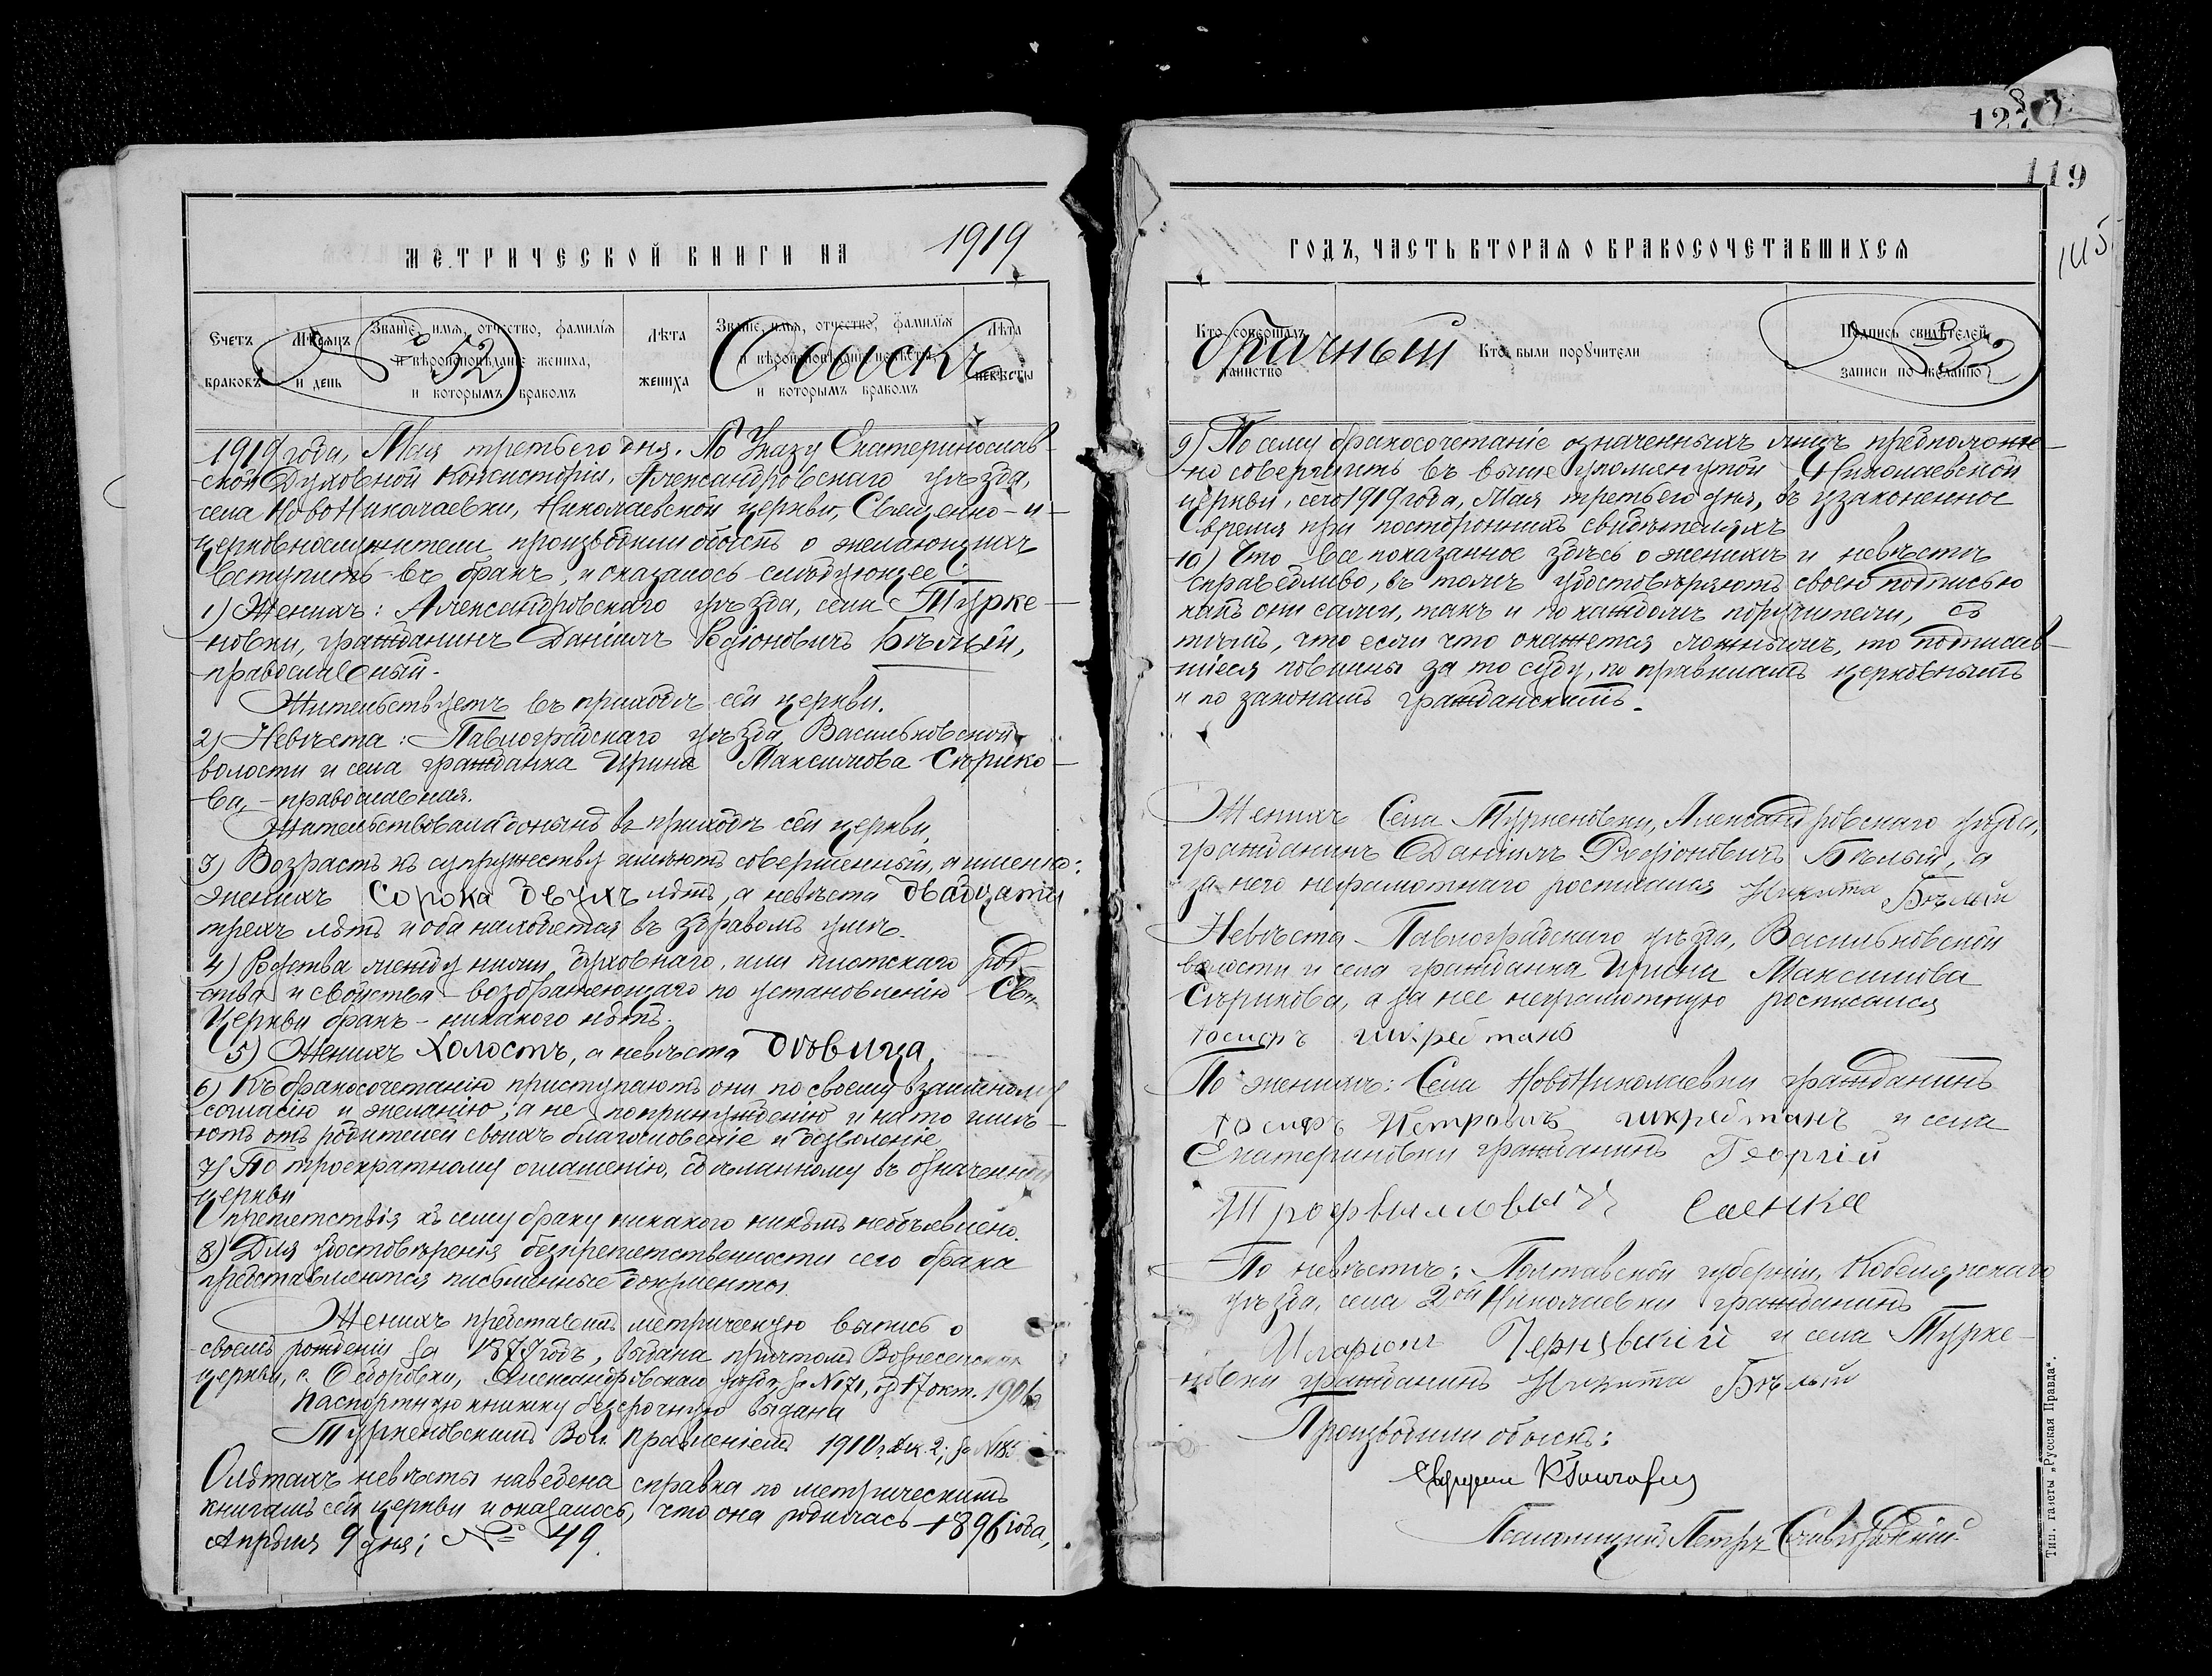 128
119
115
МЕТРИЧЕСКОЙ КНИГИ НА 1919
Счетъ браковъ
Мѣсяцъ и день
Званіе, имя, отчество, фамилія и вѣроисповѣданіе жениха, и которымъ бракомъ
Лѣта жениха
Званіе, имя, отчество, фамилія и вѣроисповѣданіе невѣсты, и которымъ бракомъ
Лѣта невѣсты
№ 52 Обыскъ
1919 года, Мая третьего дня. По Указу Екатеринослав-
ской Духовной Консисторіи, Александровскаго уѣзда,
села НовоНиколаевки, Николаевской церкви, Священно-и-
церковнослужители производили обыскъ о желающихъ
вступить въ бракъ, и оказалось слѣдующее:
1) Женихъ: Александровскаго уѣзда, села Турке-
новки, гражданинъ Даніилъ Родіоновичъ Бѣлый,
православный.
Жительствуетъ въ приходѣ сей церкви.
2) Невѣста: Павлоградскаго уѣзда Васильковской
волости и села гражданка Ирина Максимова Сѣрико-
ва, - православная.
Жительствовала донынѣ въ приходѣ сей церкви.
3) Возрастъ къ супружеству имѣютъ совершенный, а именно:
женихъ сорока двухъ лѣтъ, а невѣста двадцати
трехъ лѣтъ и оба находятся въ здравомъ умѣ.
4) Родства между ними духовнаго, или плотскаго род-
ства и свойства - возбраняющаго по установленію Св.
Церкви бракъ - никакого нѣтъ.
5) Женихъ Холостъ, а невѣста дѣвица,
6) Къ бракосочетанію приступаютъ они по своему взаимному
согласію и желанію, а не по принужденію и на то имѣ-
ютъ отъ родителей своихъ благословеніе и дозволеніе
7) По троекратному оглашенію, сдѣланному въ означенной
церкви
препятствія къ сему браку никакого никѣмъ не объявлено.
8) Для удостовѣренія безпрепятственности сего брака
представляются письменные документы.
Женихъ представилъ метрическую выпись о
своемъ рожденіи за 1878 годъ, выдана причтомъ Вознесенской
церкви, с. Ѳедоровки, Александровскаго уѣзда, за № 71, отъ 17 окт. 1906
Паспортную книжку безсрочную выдана
Туркеновскимъ Вол. Правленіемъ 1910 г. Дек. 2, за № 185
О лѣтахъ невѣсты наведена справка по метрическимъ
книгамъ сей церкви и оказалось, что она родилась - 1896 года,
Апрѣля 9 дня; № 49.
ГОДЪ, ЧАСТЬ ВТОРАЯ О БРАКОСОЧЕТАВШИХСЯ
Кто совершалъ таинство
Кто были поручители
Подпись свидѣтелей записи по желанію
брачный № 52
9) По сему бракосочетаніе означенныхъ лицъ предположе-
но совершить въ выше упомянутой Николаевской
церкви, сего 1919 года, Мая третьего дня, въ узаконенное
время при постороннихъ свидѣтеляхъ
10) Что все показанное здѣсь о женихѣ и невѣстѣ
справедливо, въ томъ удостовѣряютъ своею подписью
какъ они сами, такъ и по каждомъ поручители, съ
тѣмъ, что если что окажется ложнымъ, то подписав-
шіеся повинны за то суду, по правиламъ церковнымъ
и по законамъ гражданскимъ.
Женихъ Села Туркеновки, Александровскаго уѣзда,
гражданинъ Даніилъ Родіоновичъ Бѣлый, а
за него неграмотнаго росписался Никита Бѣлый
Невѣста - Павлоградскаго уѣзда, Васильковской
волости и села гражданка Ирина Максимова
Сѣрикова, а за нее неграмотную росписался
Іосифъ
По женихѣ: Села НовоНиколаевки гражданинъ
Іосифъ Петровичъ и села
Екатериновки гражданинъ Георгій
Саенка
По невѣстѣ: Полтавской губерніи, Кобелякскаго
уѣзда, села 2ой Николаевки гражданинъ
Иларіонъ Чернявскій и села Турке-
новки гражданинъ Никита Бѣлый
Производили обыскъ:
Псаломщикъ Петръ
Тип. газеты „Русская Правда“.